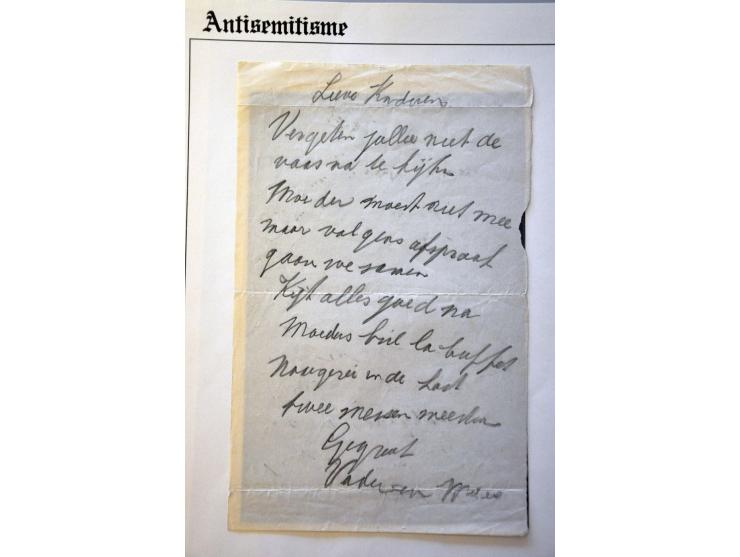 Antisemitisme
Lieve Kinderen
Vergeten jullie niet de
vaas na te kijken
Moeder moest niet mee
maar volgens afspraak
gaan we samen
Kijk alles goed na
Moeders bril la buffet
Naaigerei in de kast
twee messen
Gegroet
Vader en